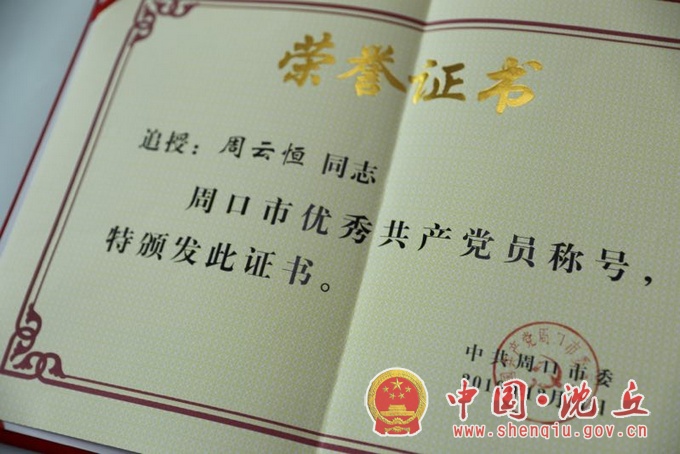 荣誉证书
追授：周云恒 同志
周口市优秀共产党员称号，
特颁发此证书。
中共周口市委
中国·沈丘
www.shenqiu.gov.cn